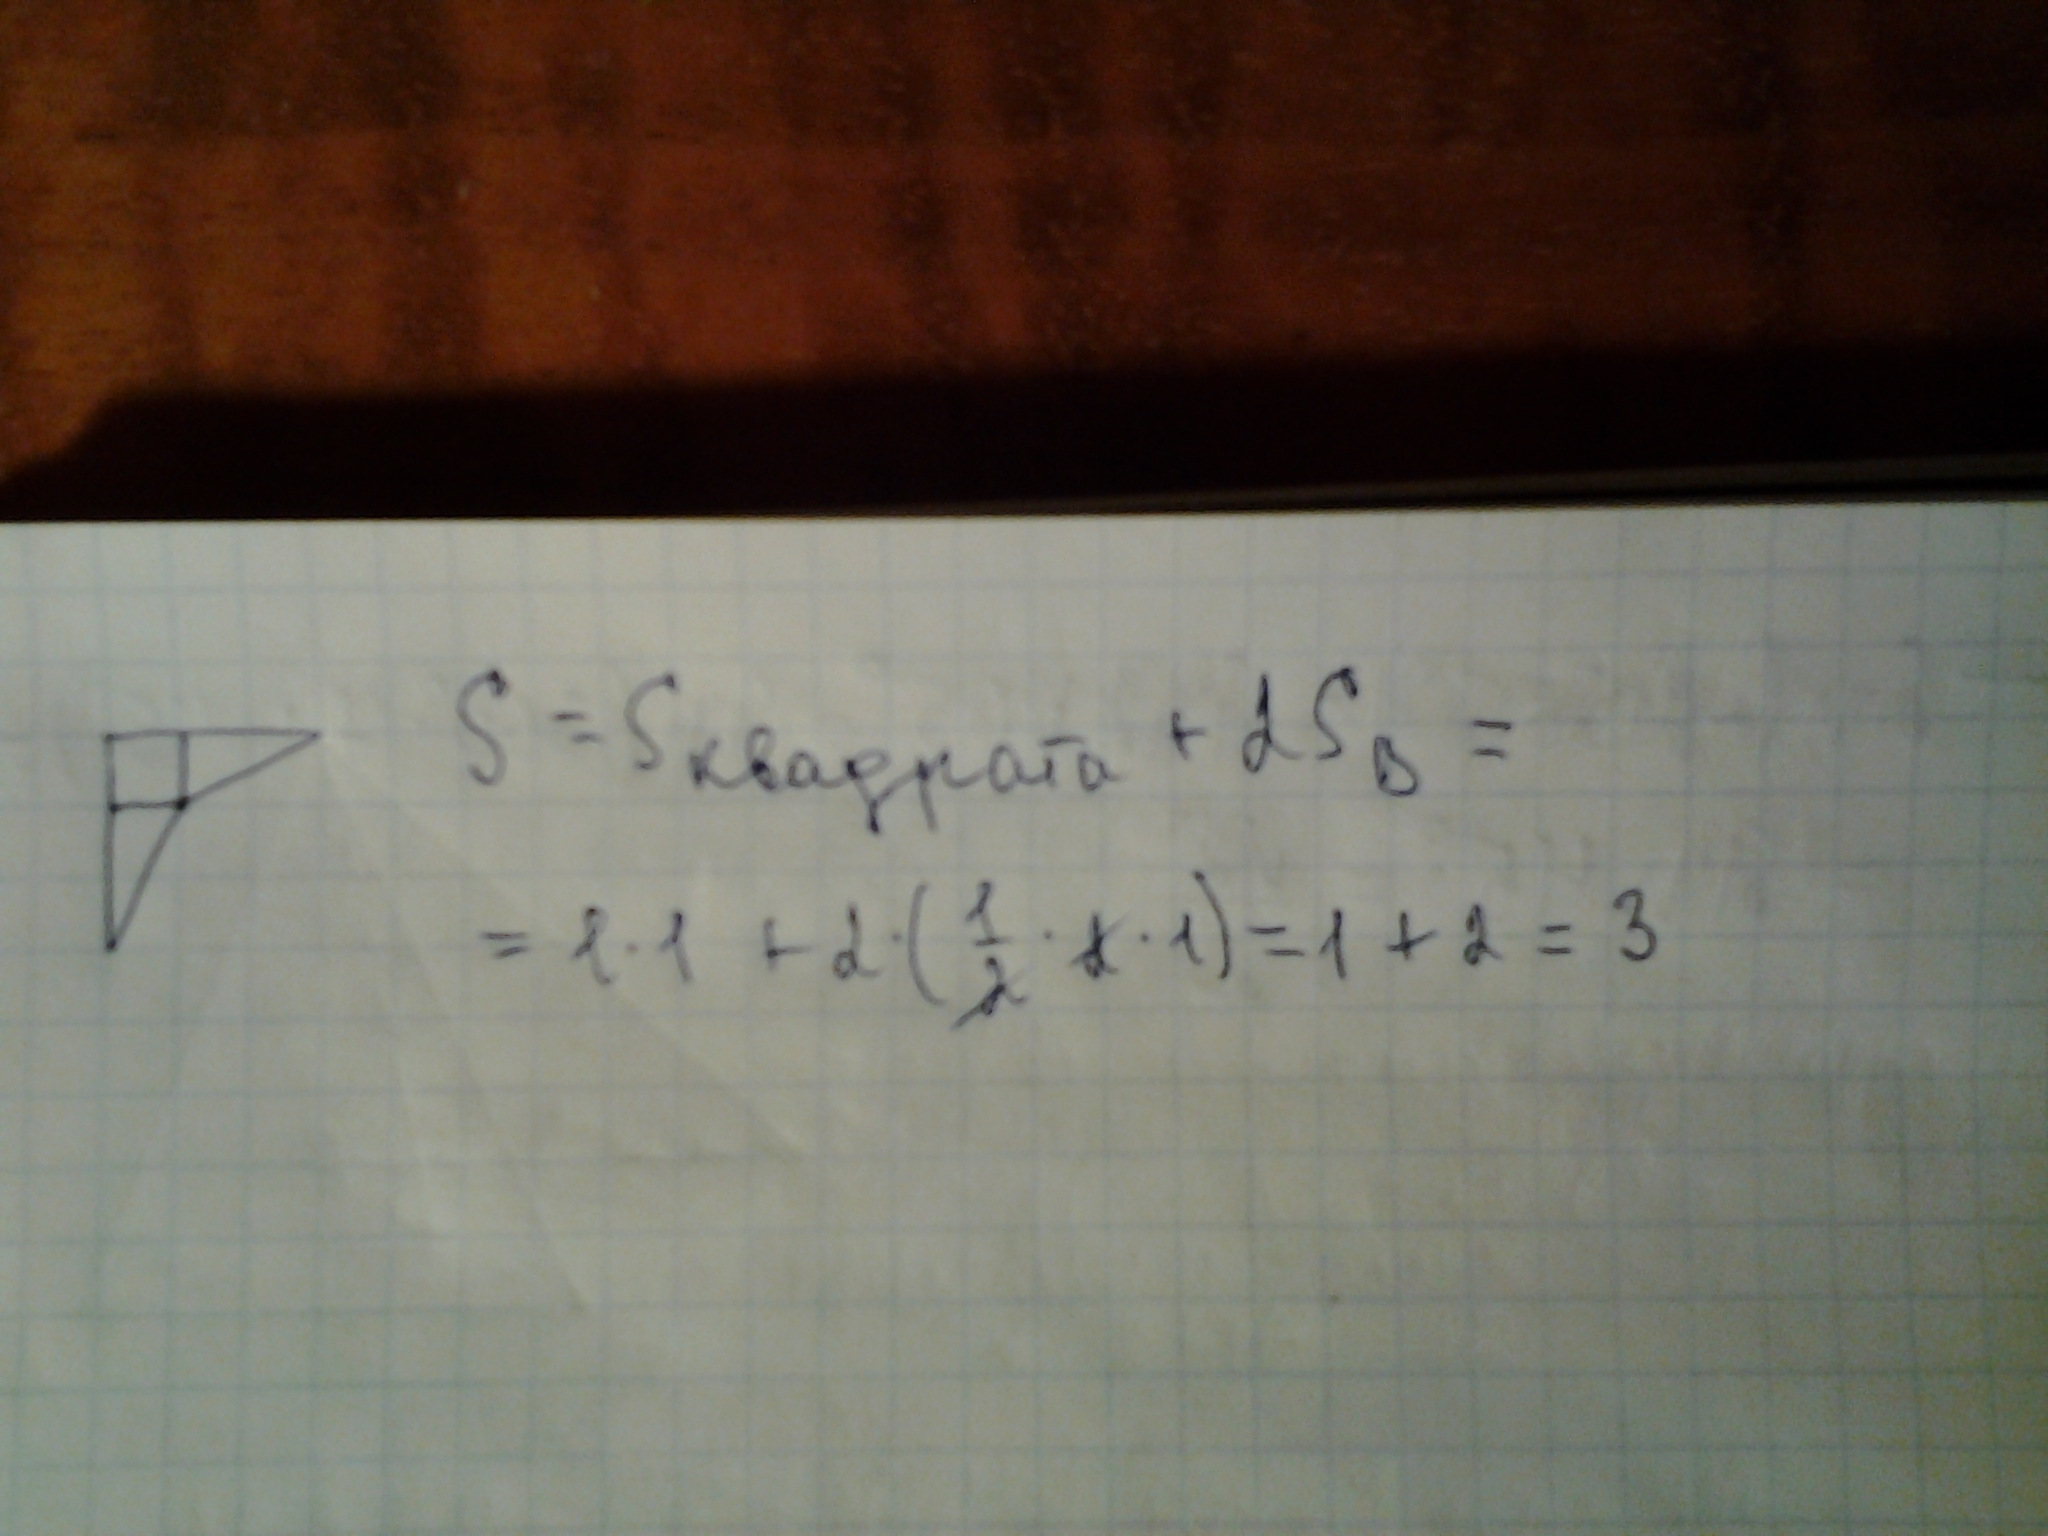 S = Sквадрата + 2SВ =
= 1·1 + 2·(1/2·2·1) = 1 + 2 = 3